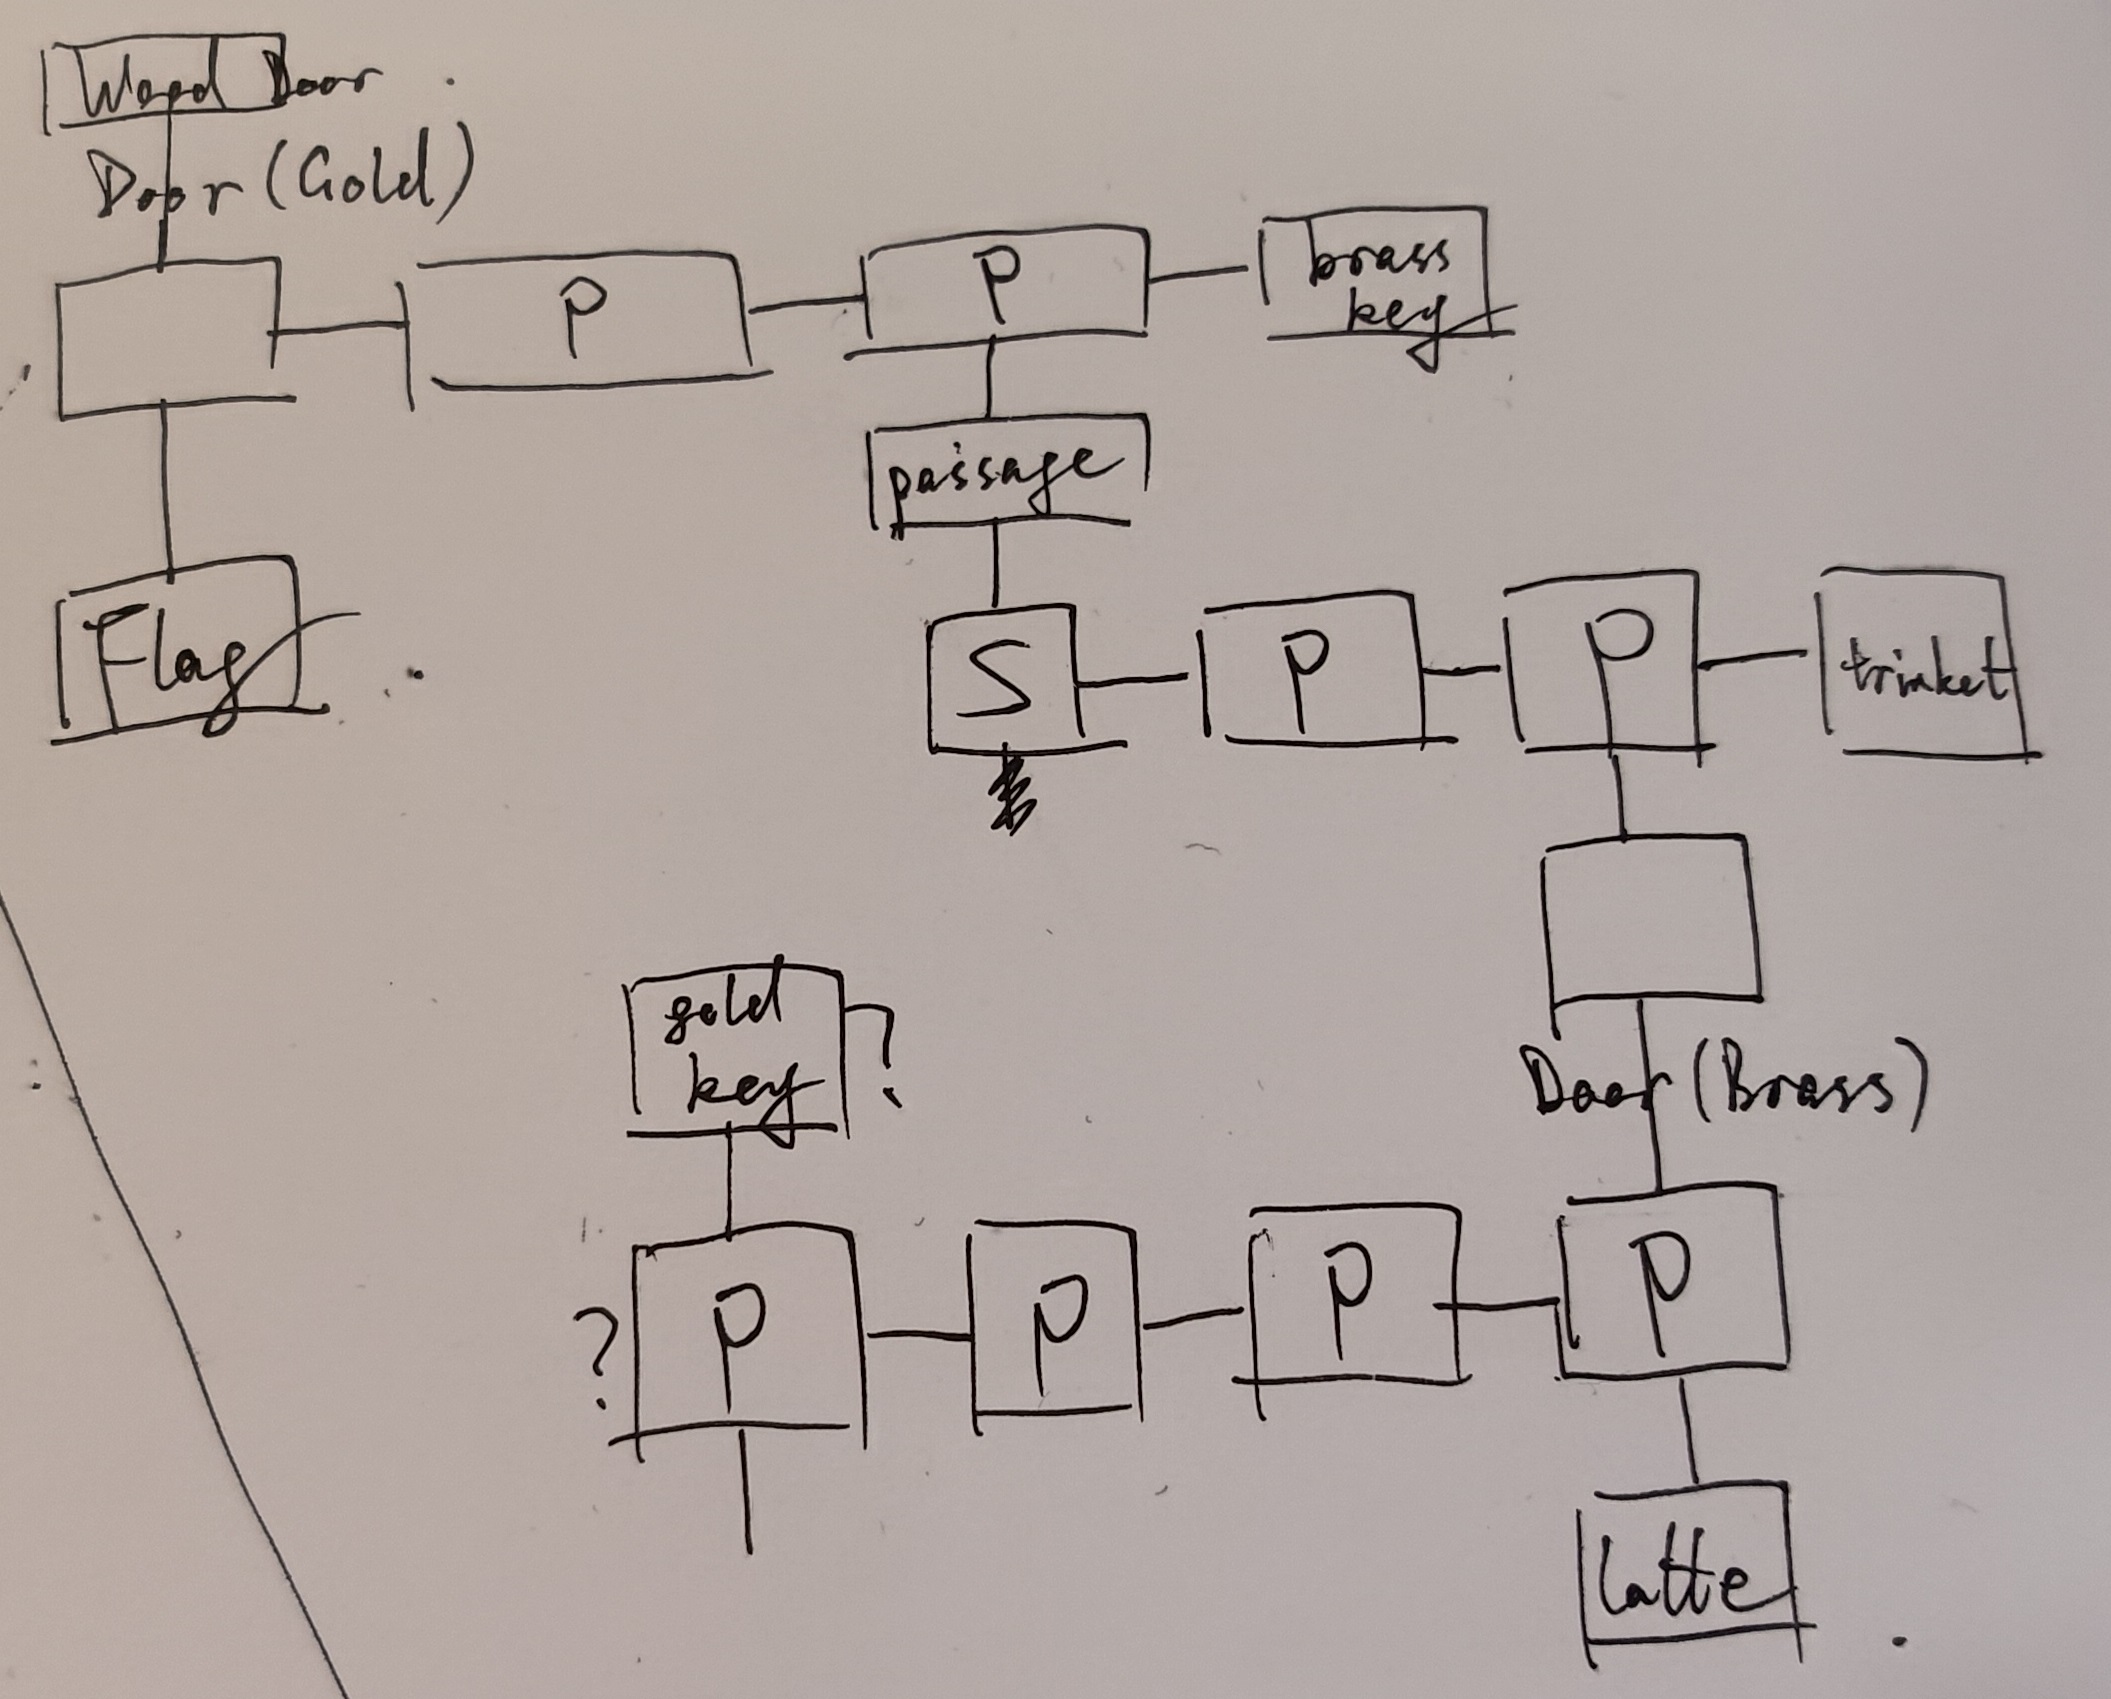 Wood Door
Door (Gold)
P
P
brass
key
passage
Flag
S
P
P
trinket
gold
key
?
Door (Brass)
?
P
P
P
P
Latte